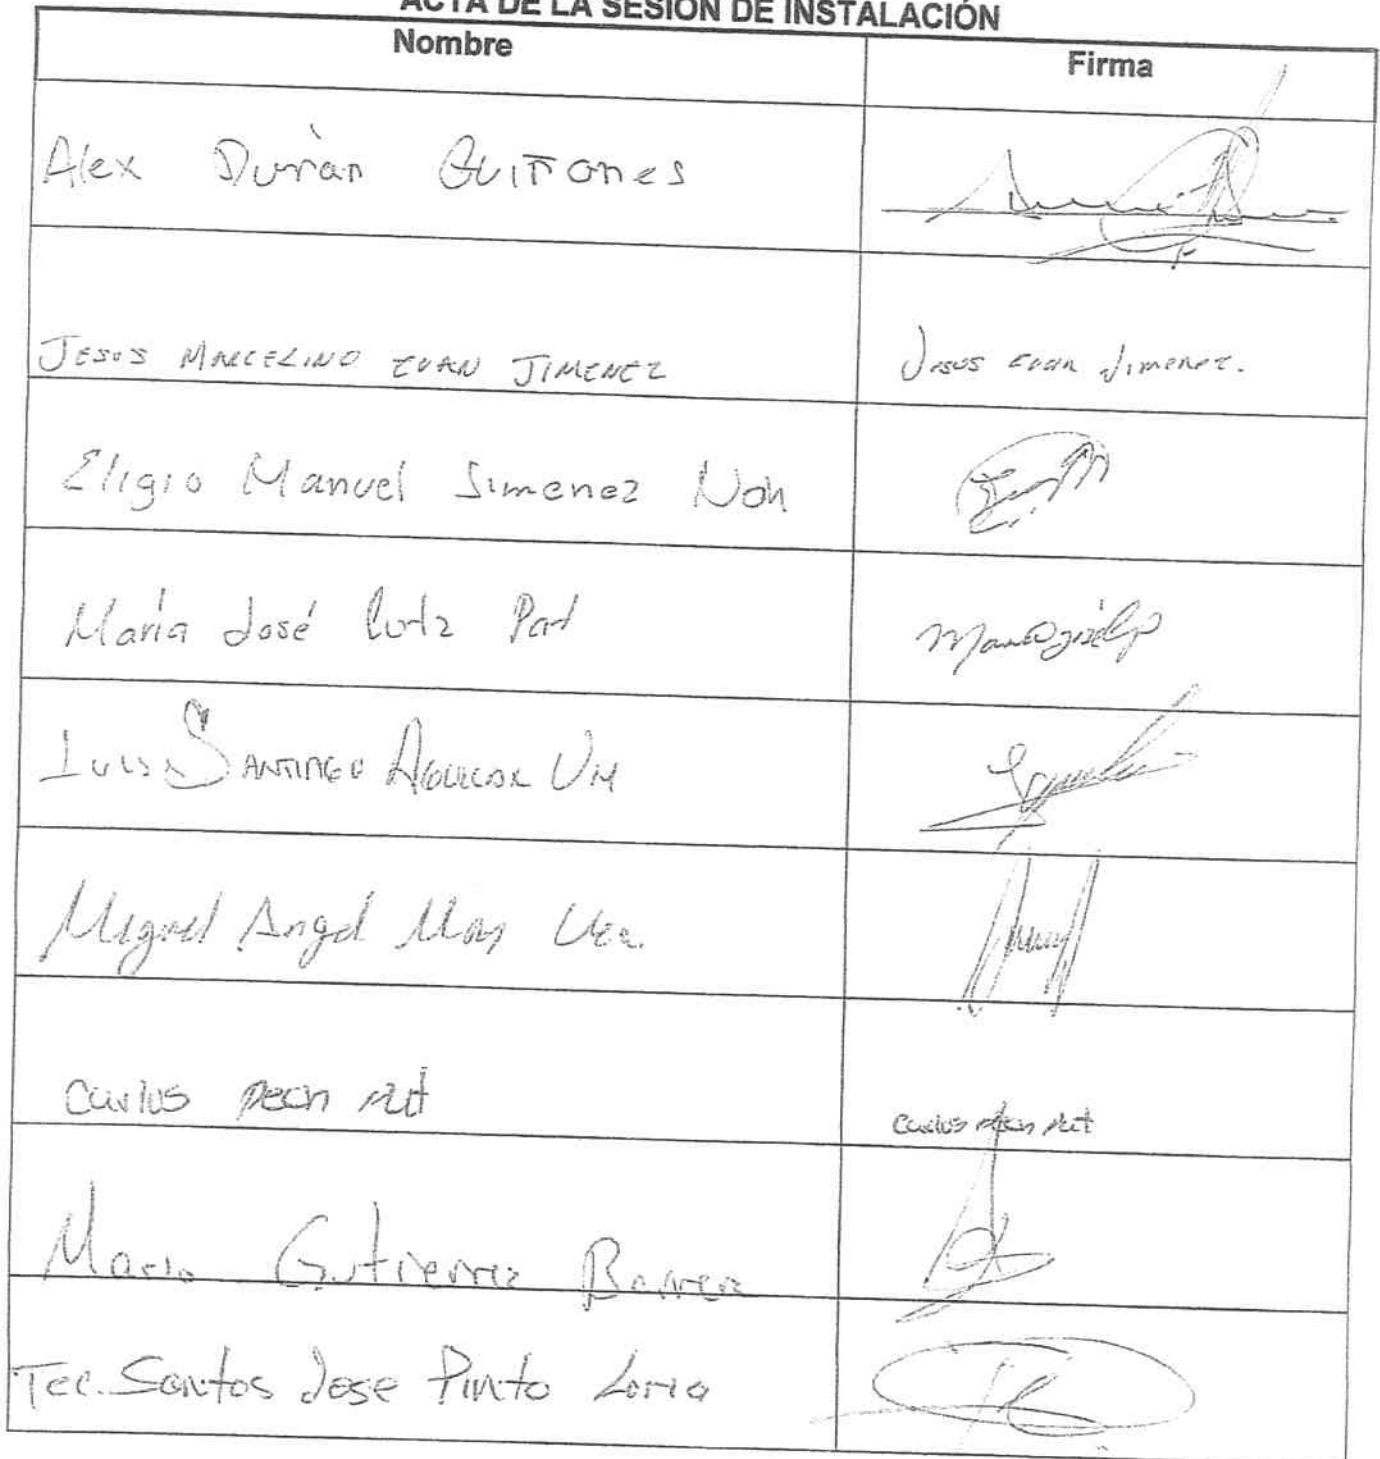 ACTA DE LA SESIÓN DE INSTALACIÓN
Nombre Firma
Alex Durán Quiñones
JESUS MARCELINO EUAN JIMENEZ Jesus Euan Jimenez.
Eligio Manuel Jimenez Noh
María José Pat
Luis SANTIAGO AGUILAR UH
Miguel Angel May
Carlos pech put Carlos pech put
Mario Gutierrez Barrera
Tec. Santos Jose Pinto Loria